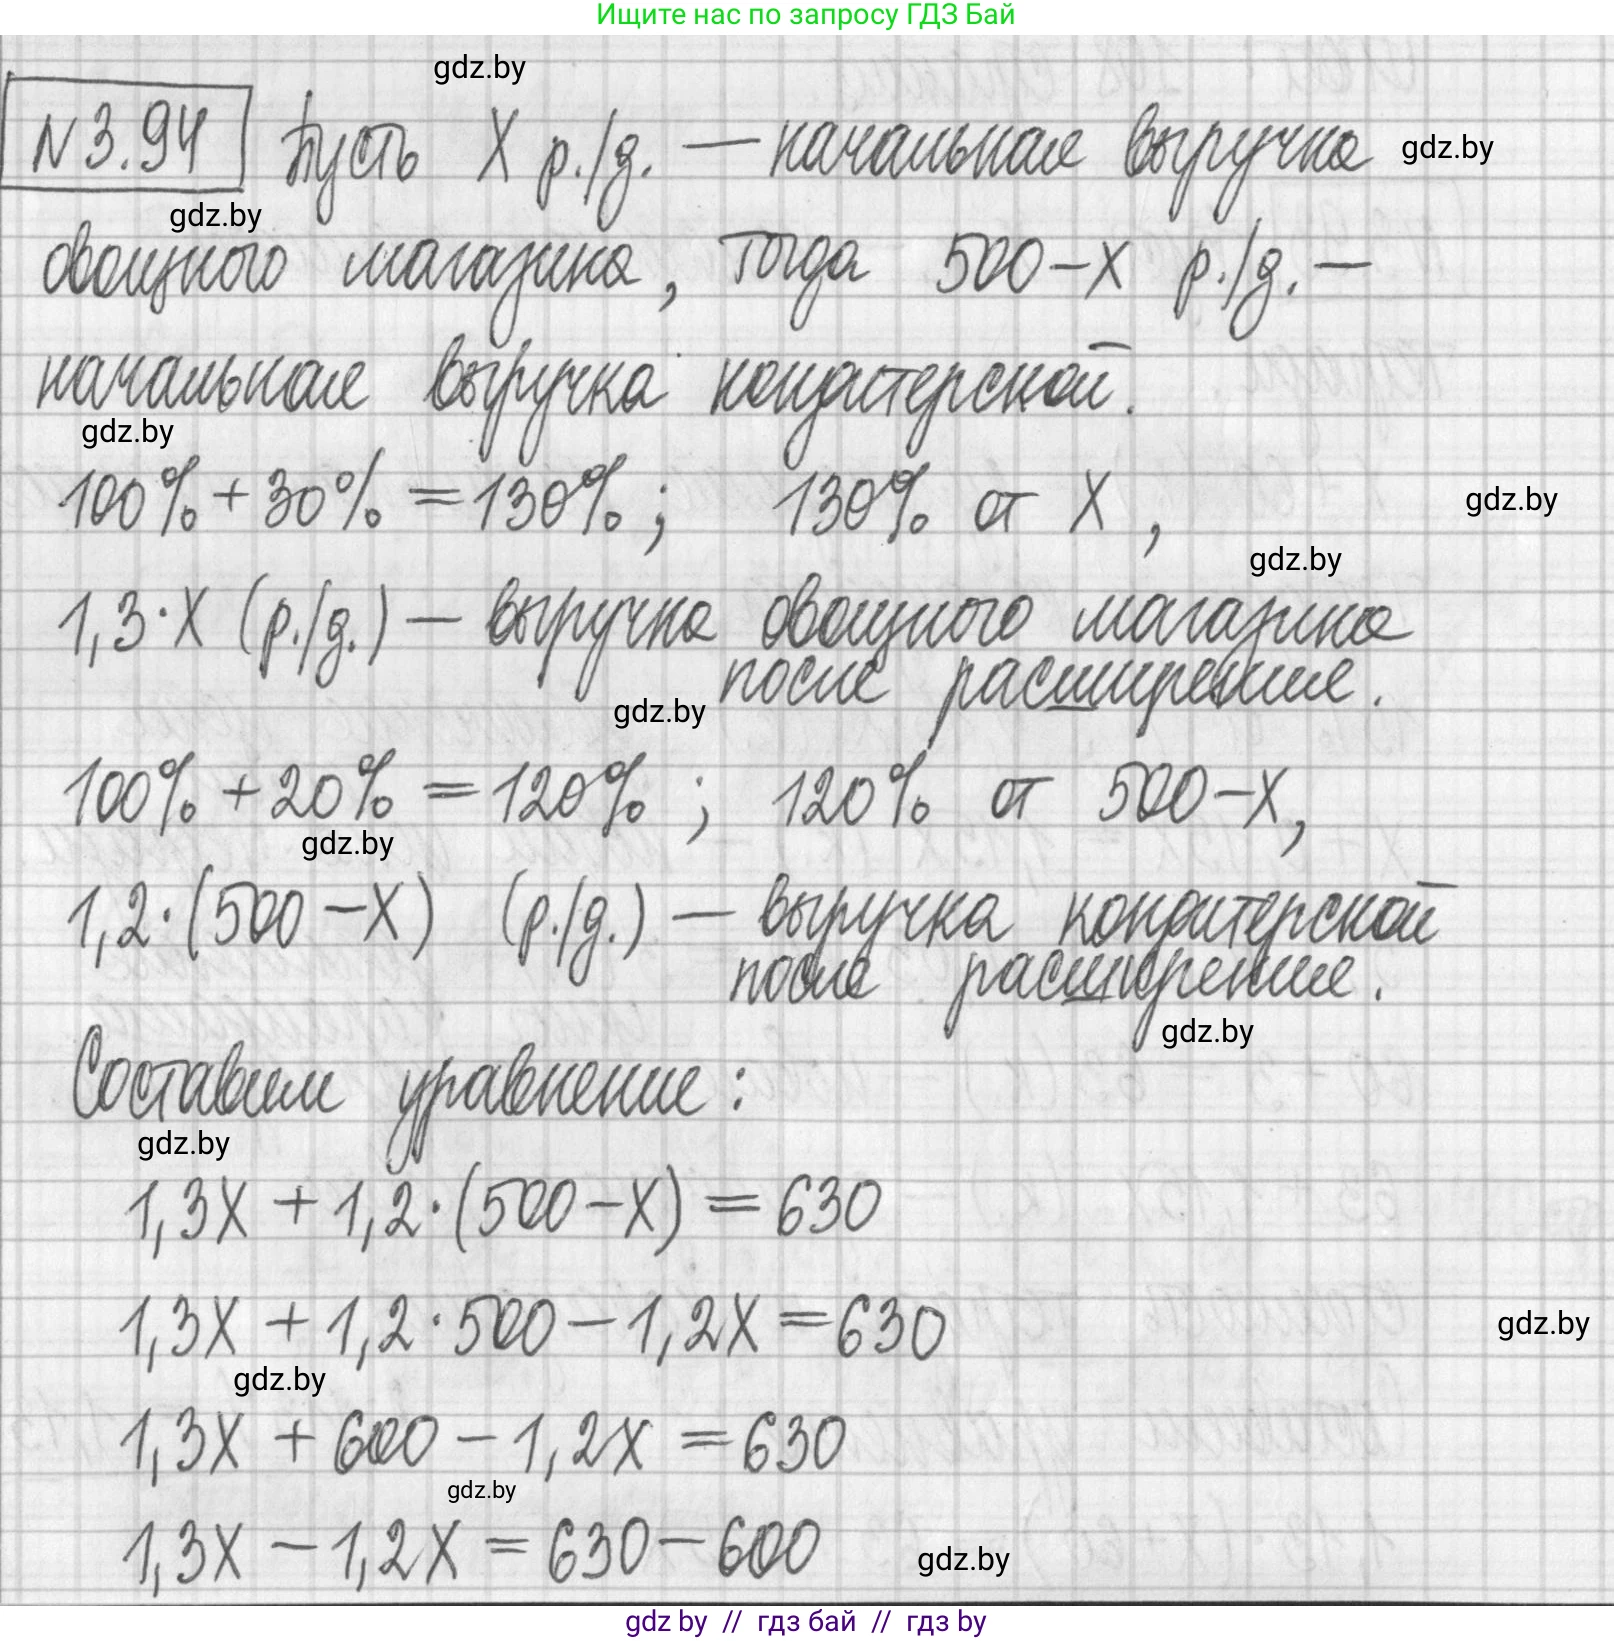 Ищите нас по запросу ГДЗ Бай
gdz.by
N3.94 Пусть X р./д. — начальная выручка gdz.by
gdz.by
овощного магазина, тогда 500-X р./д. —
начальная выручка кондитерской.
gdz.by
100% + 30% = 130%; 130% от X, gdz.by
gdz.by
1,3·X (р./д.) — выручка овощного магазина
после расширения.
gdz.by
100% + 20% = 120%; 120% от 500-X,
gdz.by
1,2·(500-X) (р./д.) — выручка кондитерской
после расширения.
gdz.by
Составим уравнение:
gdz.by
1,3X + 1,2·(500-X) = 630
1,3X + 1,2·500 - 1,2X = 630 gdz.by
gdz.by
1,3X + 600 - 1,2X = 630
gdz.by
1,3X - 1,2X = 630 - 600 gdz.by
gdz by // гдз бай // гдз by